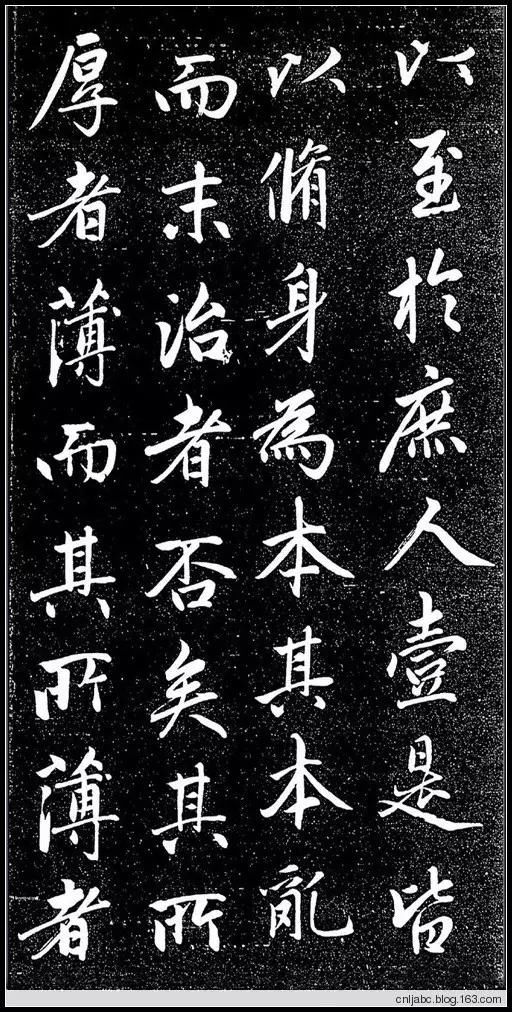 以至於庶人壹是皆
以脩身為本其本亂
而末治者否矣其所
厚者薄而其所薄者
cnljabc.blog.163.com